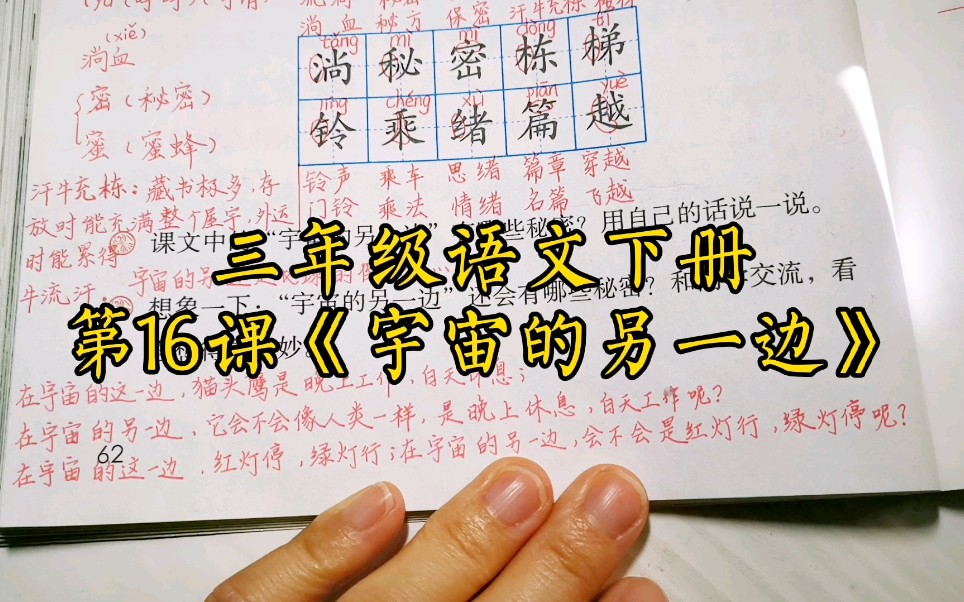 淌血 秘方 保密 汗牛充栋
(xiě)
淌血
tǎng mì mì dòng tī
淌 秘 密 栋 梯
密（秘密）
蜜（蜜蜂）
líng chéng xù piān yuè
铃 乘 绪 篇 越
铃声 乘车 思绪 篇章 穿越
门铃 乘法 情绪 名篇 飞越
汗牛充栋：藏书极多，存
放时能充满整个屋宇，外运
时能累得
牛流汗。
课文中的“宇宙的另一边”有哪些秘密？用自己的话说一说。
宇宙的另一边是
想象一下：“宇宙的另一边”还会有哪些秘密？和同学交流，看
妙。
三年级语文下册
第16课《宇宙的另一边》
在宇宙的这一边，猫头鹰是晚上工作，白天休息；
在宇宙的另一边，它会不会像人类一样，是晚上休息，白天工作呢？
62
在宇宙的这一边，红灯停，绿灯行；在宇宙的另一边，会不会是红灯行，绿灯停呢？